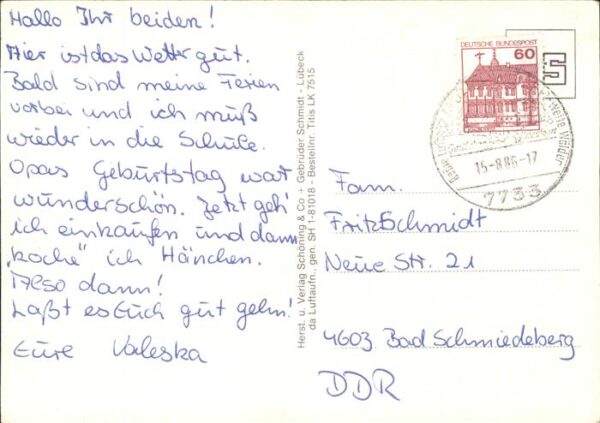 Hallo Ihr beiden!
Hier ist das Wetter gut.
Bald sind meine Ferien
vorbei und ich muß
wieder in die Schule.
Opas Geburtstag war
wunderschön. Jetzt geh'
ich einkaufen und dann
"koche" ich Hänchen.
Also dann!
Laßt es Euch gut gehn!
Eure Valeska
Herst. u. Verlag Schöning & Co + Gebrüder Schmidt - Lübeck
da Luftaufn., gen. SH 1-81018 - Bestellnr. Titis LK 7515
DEUTSCHE BUNDESPOST
60
S
15-8.86-17
7733
Fam.
Fritz Schmidt
Neue Str. 21
4603 Bad Schmiedeberg
DDR